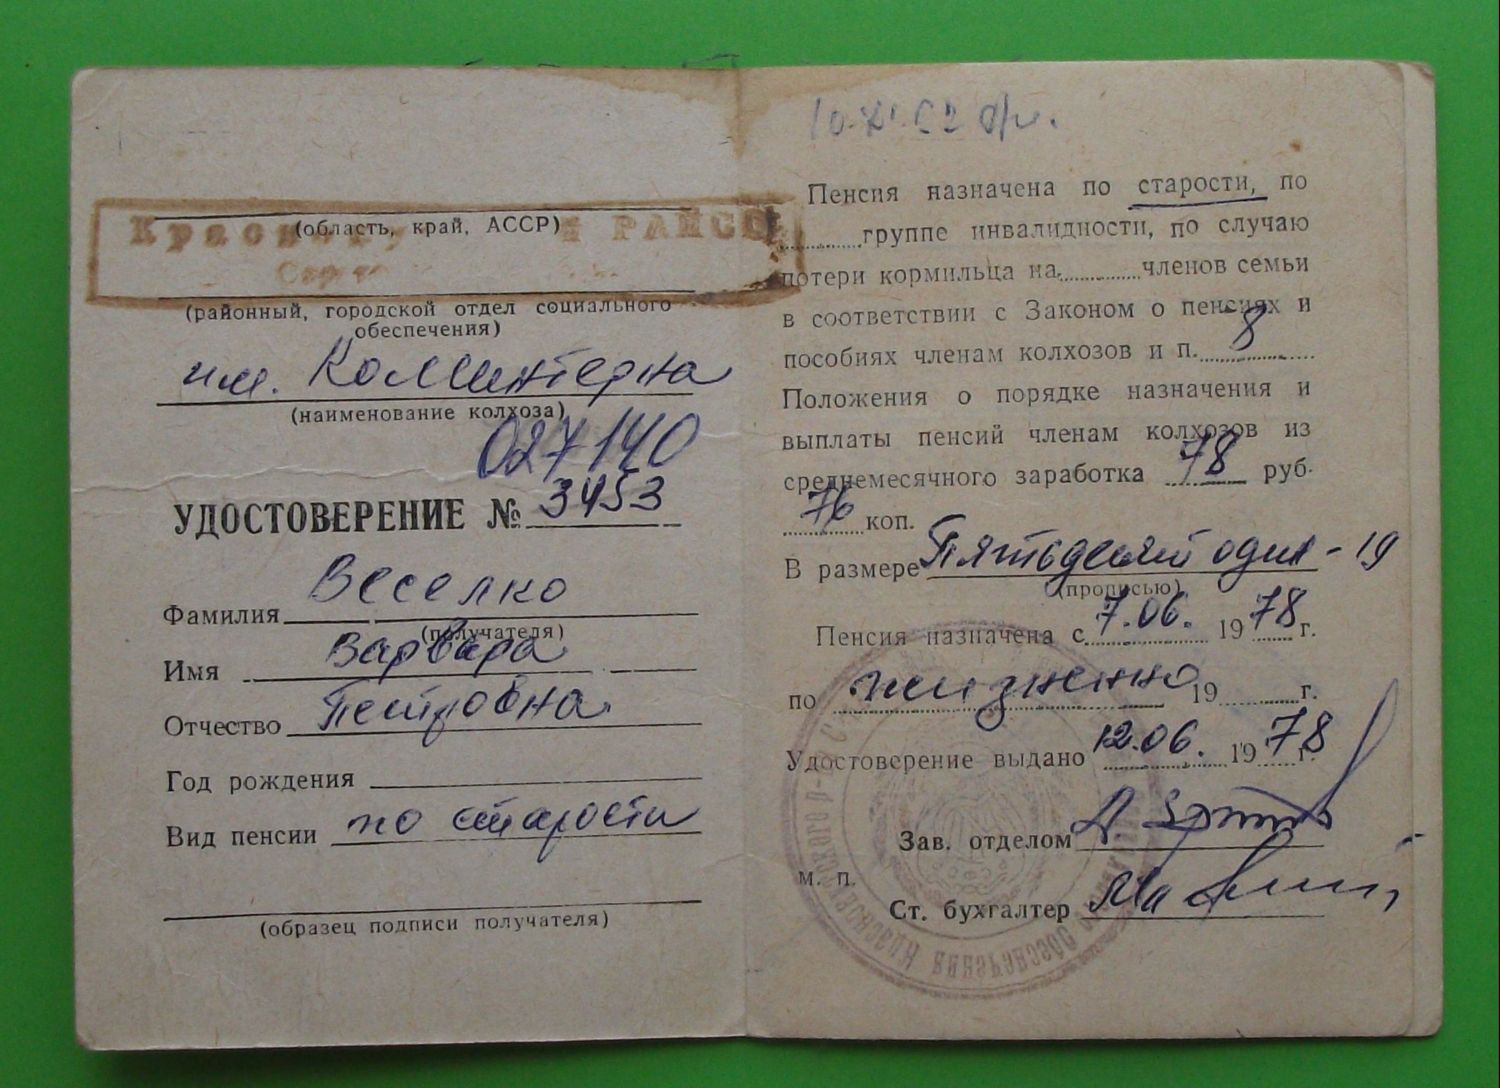 (область, край, АССР)
РАЙСО
(районный, городской отдел социального
обеспечения)
им. Коминтерна
(наименование колхоза)
027140
УДОСТОВЕРЕНИЕ № 3453
Фамилия Веселко
(получателя)
Имя Варвара
Отчество Петровна
Год рождения
Вид пенсии по старости
(образец подписи получателя)
Пенсия назначена по старости, по
группе инвалидности, по случаю
потери кормильца на членов семьи
в соответствии с Законом о пенсиях и
пособиях членам колхозов и п. 8
Положения о порядке назначения и
выплаты пенсий членам колхозов из
среднемесячного заработка 78 руб.
76 коп.
В размере Пятьдесят один - 19
(прописью)
Пенсия назначена с 7.06. 1978 г.
по жизненно 19 г.
Удостоверение выдано 12.06. 1978 г.
Зав. отделом
м. п.
Ст. бухгалтер